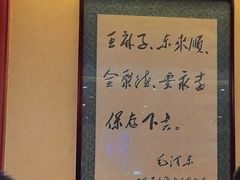 王麻子、东来顺、
全聚德、要永吉
保存下去。
毛泽东